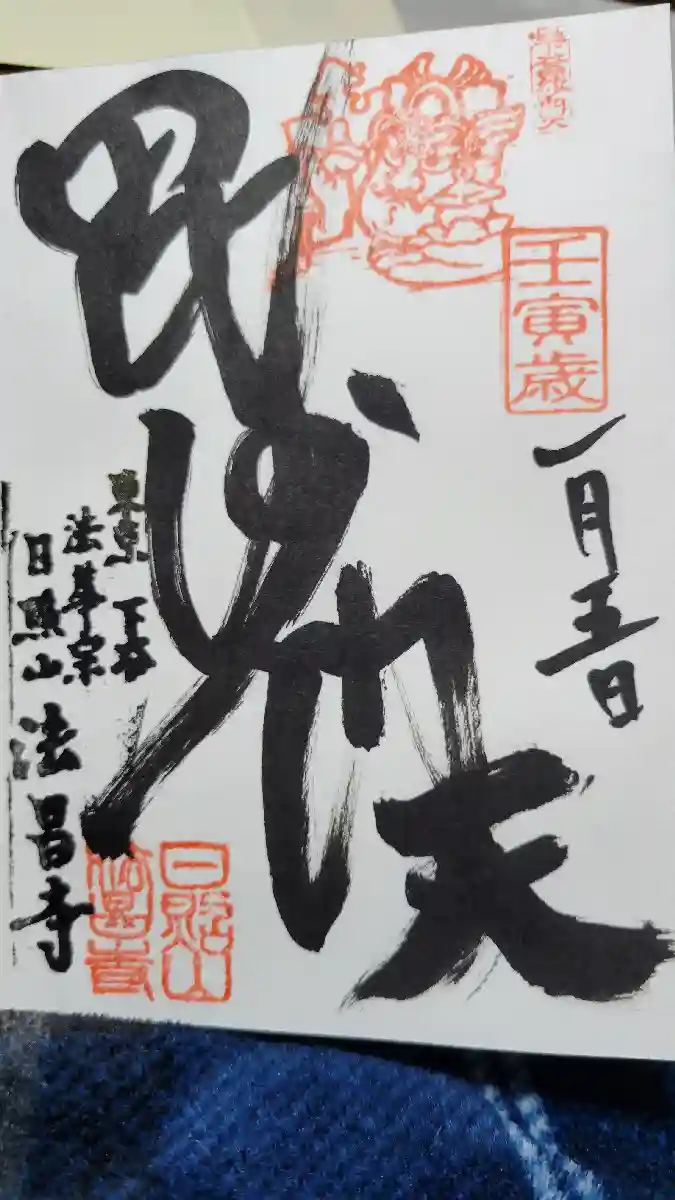 壬寅歳
一月五日
毘沙門天
東京 下谷
法華宗
日照山 法昌寺
日照山
法昌寺